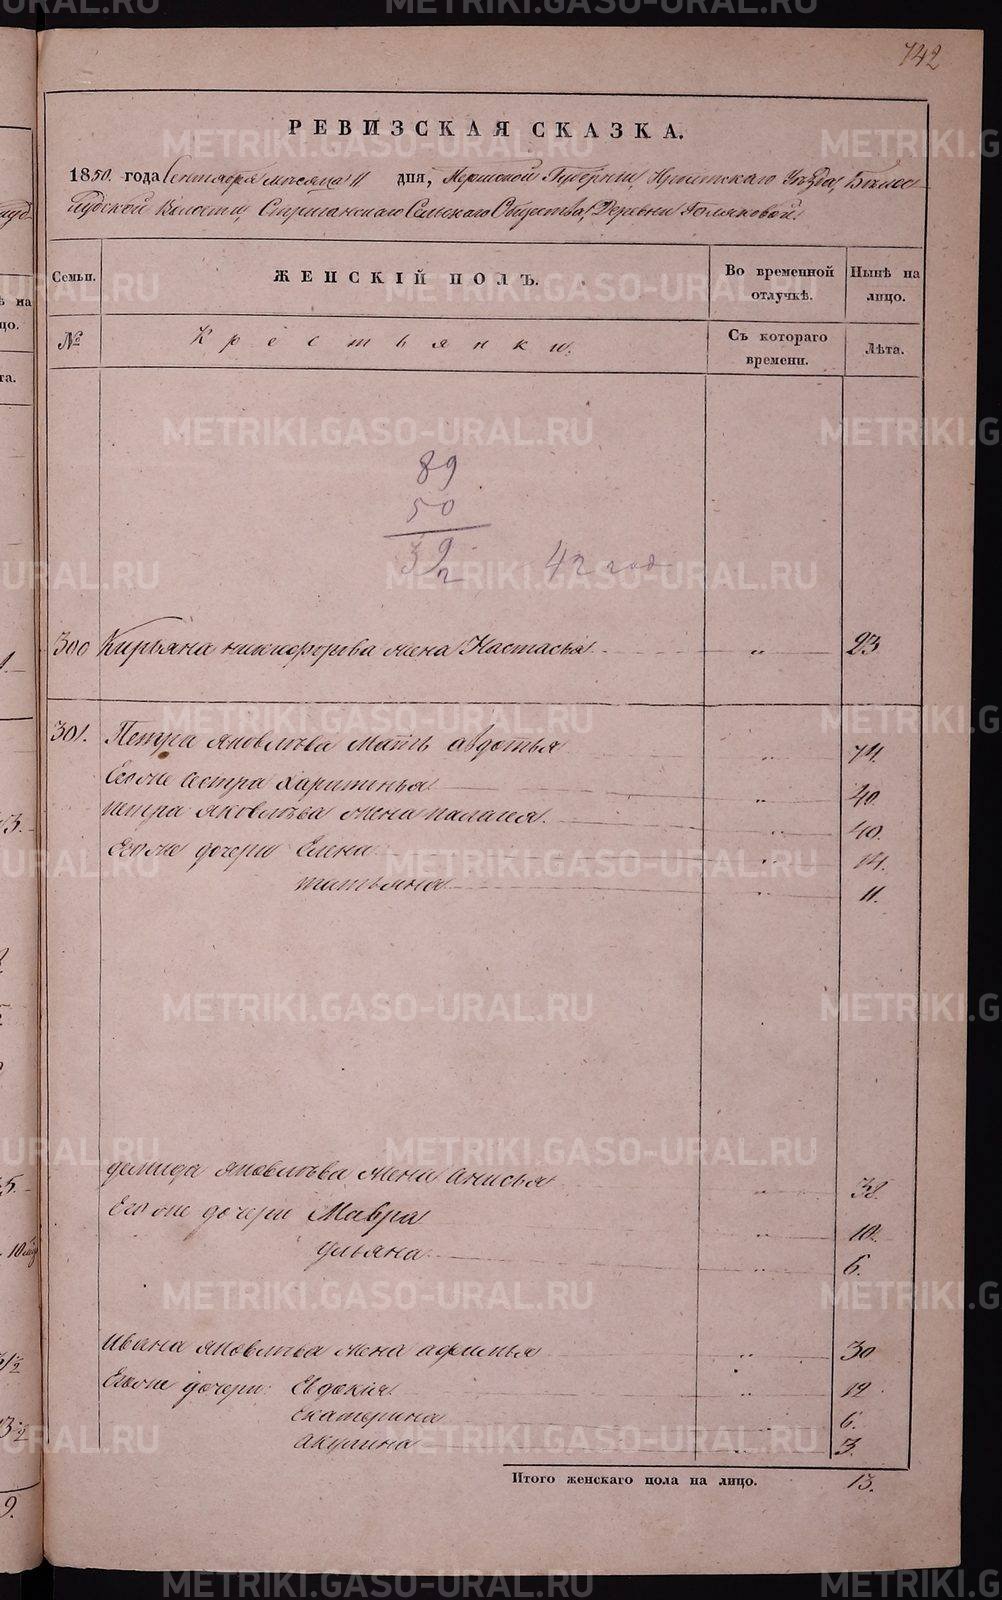 742
РЕВИЗСКАЯ СКАЗКА.
1850. года Сентября месяца 11 дня, Пермской Губернии, Ирбитскаго Уѣзда,
Волости, Стриганскаго Сельскаго Общества, Деревни Голяковой.
Семьи. ЖЕНСКІЙ ПОЛЪ. Во временной отлучкѣ. Нынѣ на лицо.
№ Крестьянки. Съ котораго времени. Лѣта.
89
50
39
42 год
300 Кирьяна никифорова жена Настасья „ 23
301. Петра яковлѣва Мать авдотья „ 74.
Его же сестра Харитинья „ 40.
петра яковлѣва жена палагея. „ 40.
Его же дочери Елена „ 14.
татьяна „ 11.
демида яковлѣва жена Анисья „ 38.
Его же дочери Мавра „ 10.
ульяна „ 6.
ивана яковлѣва жена афимья „ 30
Его же дочери: Евдокія „ 12.
екатерина „ 6.
акулина „ 3.
Итого женскаго пола на лицо. 13.
METRIKI.GASO-URAL.RU